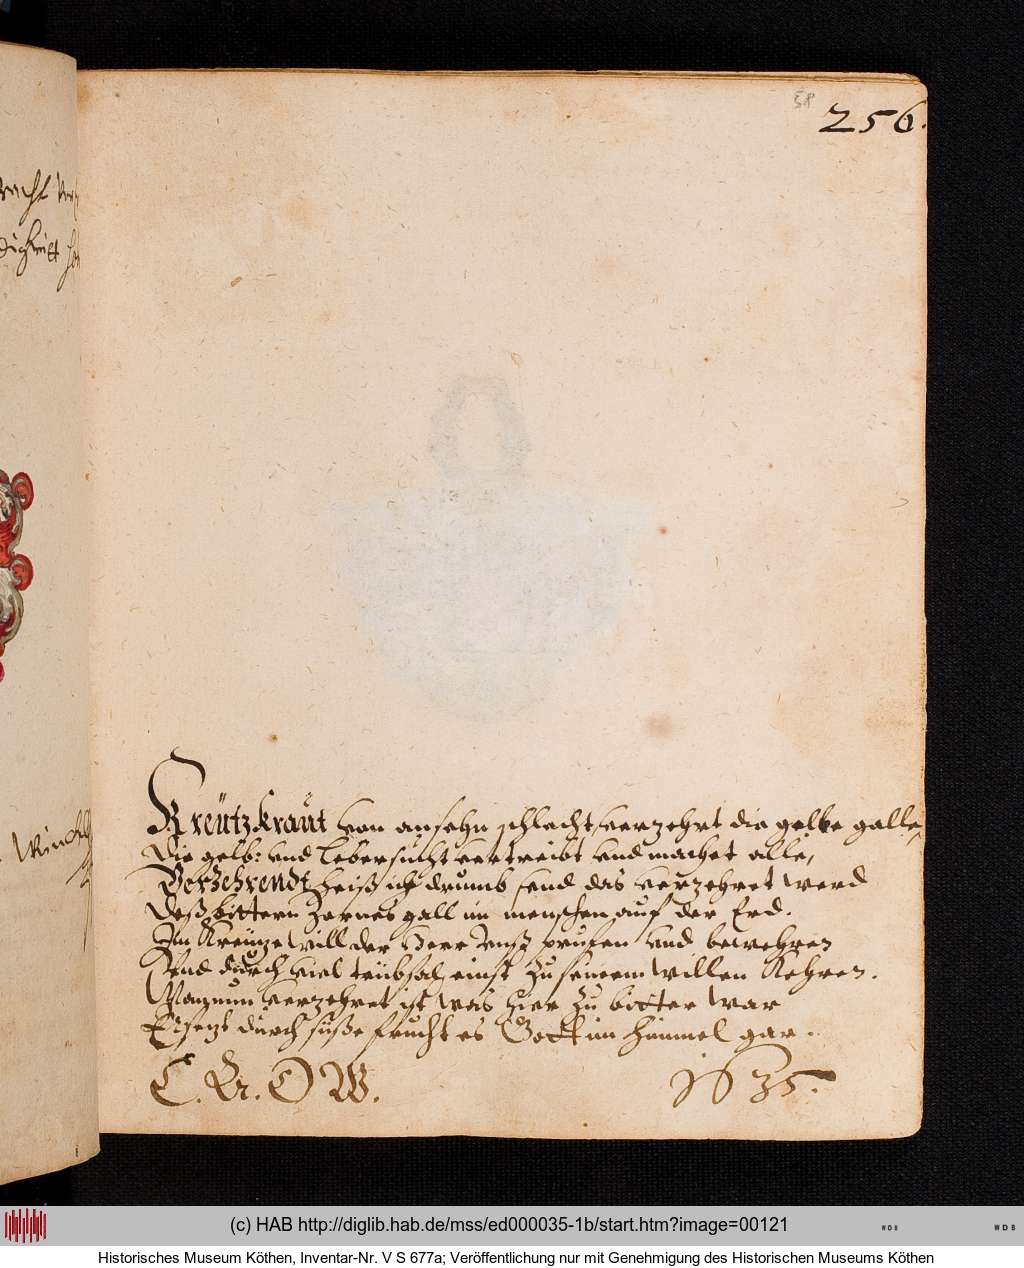 58
256.
Kreützkraut von ansehn schlecht, verzehrt die gelbe galle,
Die gelb: und lebersücht vertreibt und machet alle,
Verzehrendt heiß ich drumb send das verzehret werd
Deß bittern Zornes gall im menschen auf der Erd.
Im Kreütze will der Herr unß prüfen und bewehren
Und durch viel trübsal einst zu seinem willen Kehren.
Wan nun verzehret ist was hier zu bitter war
durch süße frucht es Gott im himmel gar.
C. E. O W.
1635.
(c) HAB http://diglib.hab.de/mss/ed000035-1b/start.htm?image=00121
WDB
WDB
Historisches Museum Köthen, Inventar-Nr. V S 677a; Veröffentlichung nur mit Genehmigung des Historischen Museums Köthen